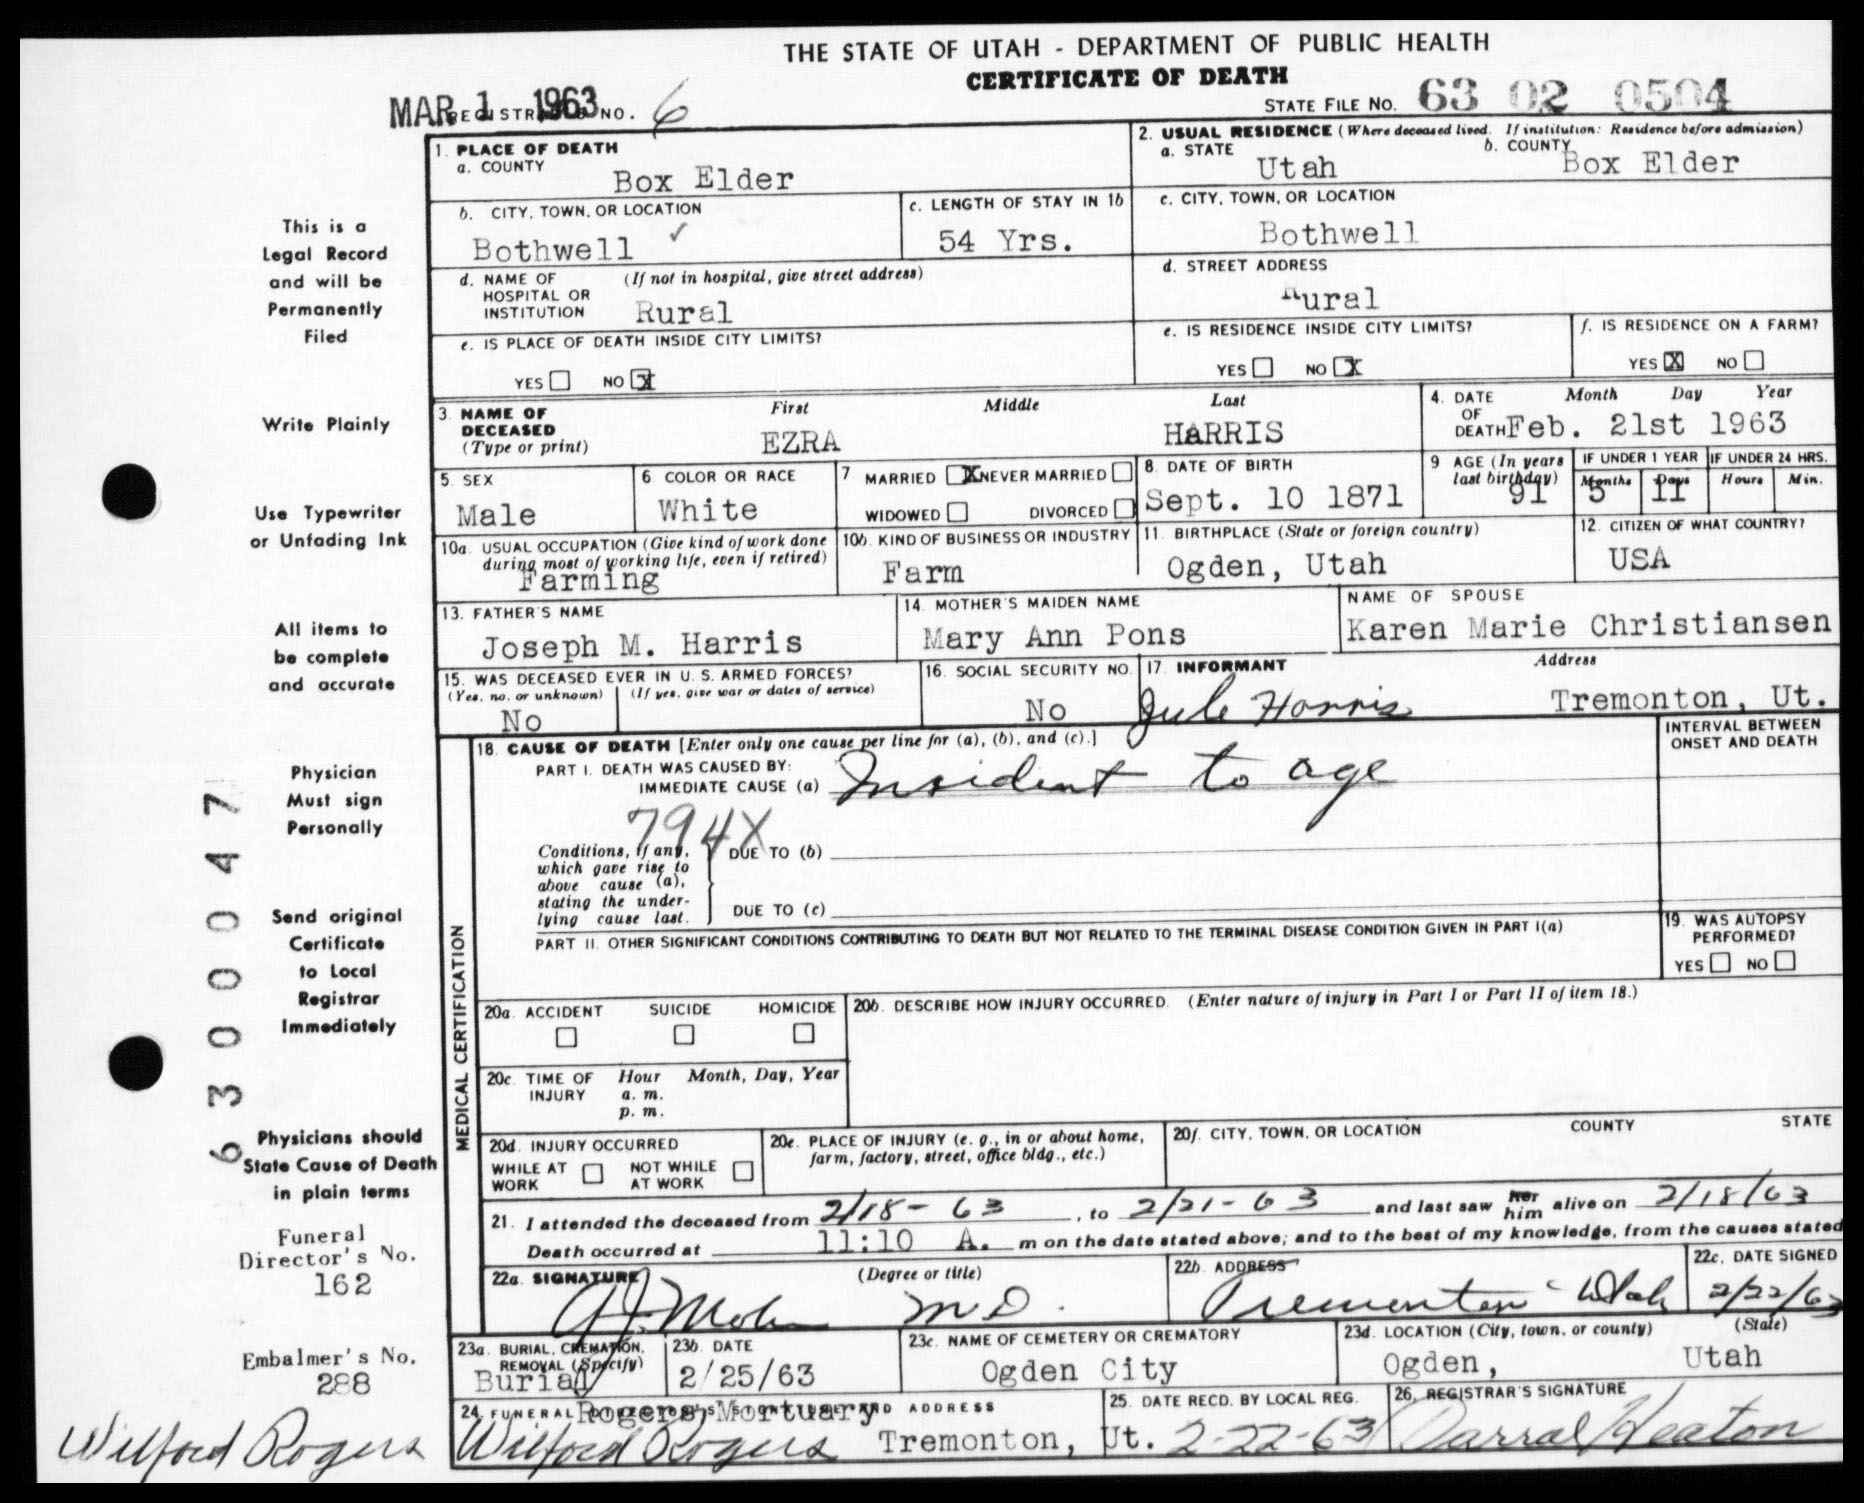 THE STATE OF UTAH - DEPARTMENT OF PUBLIC HEALTH
CERTIFICATE OF DEATH
MAR 1 1963
NO. 6
STATE FILE NO. 63 02 0504
1. PLACE OF DEATH
a. COUNTY
Box Elder
2. USUAL RESIDENCE (Where deceased lived. If institution: Residence before admission)
a. STATE
Utah
b. COUNTY
Box Elder
b. CITY, TOWN, OR LOCATION
Bothwell ✓
c. LENGTH OF STAY IN 1b
54 Yrs.
c. CITY, TOWN, OR LOCATION
Bothwell
d. NAME OF HOSPITAL OR INSTITUTION
(If not in hospital, give street address)
Rural
d. STREET ADDRESS
Rural
e. IS PLACE OF DEATH INSIDE CITY LIMITS?
YES ☐ NO ☒
e. IS RESIDENCE INSIDE CITY LIMITS?
YES ☐ NO ☒
f. IS RESIDENCE ON A FARM?
YES ☒ NO ☐
3. NAME OF DECEASED
(Type or print)
First Middle Last
EZRA HARRIS
4. DATE OF DEATH
Month Day Year
Feb. 21st 1963
5. SEX
Male
6 COLOR OR RACE
White
7 MARRIED ☒ NEVER MARRIED ☐
WIDOWED ☐ DIVORCED ☐
8. DATE OF BIRTH
Sept. 10 1871
9 AGE (In years last birthday)
91
IF UNDER 1 YEAR
Months Days
5 11
IF UNDER 24 HRS.
Hours Min.
10a. USUAL OCCUPATION (Give kind of work done during most of working life, even if retired)
Farming
10b. KIND OF BUSINESS OR INDUSTRY
Farm
11. BIRTHPLACE (State or foreign country)
Ogden, Utah
12. CITIZEN OF WHAT COUNTRY?
USA
13. FATHER'S NAME
Joseph M. Harris
14. MOTHER'S MAIDEN NAME
Mary Ann Pons
NAME OF SPOUSE
Karen Marie Christiansen
15. WAS DECEASED EVER IN U. S. ARMED FORCES?
(Yes, no, or unknown) (If yes, give war or dates of service)
No
16. SOCIAL SECURITY NO.
No
17. INFORMANT Address
Jule Harris Tremonton, Ut.
MEDICAL CERTIFICATION
18. CAUSE OF DEATH [Enter only one cause per line for (a), (b), and (c).]
INTERVAL BETWEEN ONSET AND DEATH
PART I. DEATH WAS CAUSED BY:
IMMEDIATE CAUSE (a) Insident to age
794X
Conditions, if any, which gave rise to above cause (a), stating the underlying cause last.
DUE TO (b)
DUE TO (c)
PART II. OTHER SIGNIFICANT CONDITIONS CONTRIBUTING TO DEATH BUT NOT RELATED TO THE TERMINAL DISEASE CONDITION GIVEN IN PART I(a)
19. WAS AUTOPSY PERFORMED?
YES ☐ NO ☐
20a. ACCIDENT SUICIDE HOMICIDE
☐ ☐ ☐
20b. DESCRIBE HOW INJURY OCCURRED. (Enter nature of injury in Part I or Part II of item 18.)
20c. TIME OF INJURY
Hour Month, Day, Year
a. m.
p. m.
20d. INJURY OCCURRED
WHILE AT WORK ☐ NOT WHILE AT WORK ☐
20e. PLACE OF INJURY (e. g., in or about home, farm, factory, street, office bldg., etc.)
20f. CITY, TOWN, OR LOCATION COUNTY STATE
21. I attended the deceased from 2/18-63, to 2/21-63 and last saw her him alive on 2/18/63
Death occurred at 11:10 A. m on the date stated above; and to the best of my knowledge, from the causes stated
22a. SIGNATURE (Degree or title)
M D.
22b. ADDRESS
Tremonton Utah
22c. DATE SIGNED
2/22/63
23a. BURIAL, CREMATION, REMOVAL (Specify)
Burial
23b. DATE
2/25/63
23c. NAME OF CEMETERY OR CREMATORY
Ogden City
23d. LOCATION (City, town, or county) (State)
Ogden, Utah
24. FUNERAL AND ADDRESS
Rogers Mortuary
Wilford Rogers Tremonton, Ut.
25. DATE RECD. BY LOCAL REG.
2-22-63
26. REGISTRAR'S SIGNATURE
Darral Heaton
This is a
Legal Record
and will be
Permanently
Filed
Write Plainly
Use Typewriter
or Unfading Ink
All items to
be complete
and accurate
Physician
Must sign
Personally
Send original
Certificate
to Local
Registrar
Immediately
Physicians should
State Cause of Death
in plain terms
6300047
Funeral
Director's No.
162
Embalmer's No.
288
Wilford Rogers